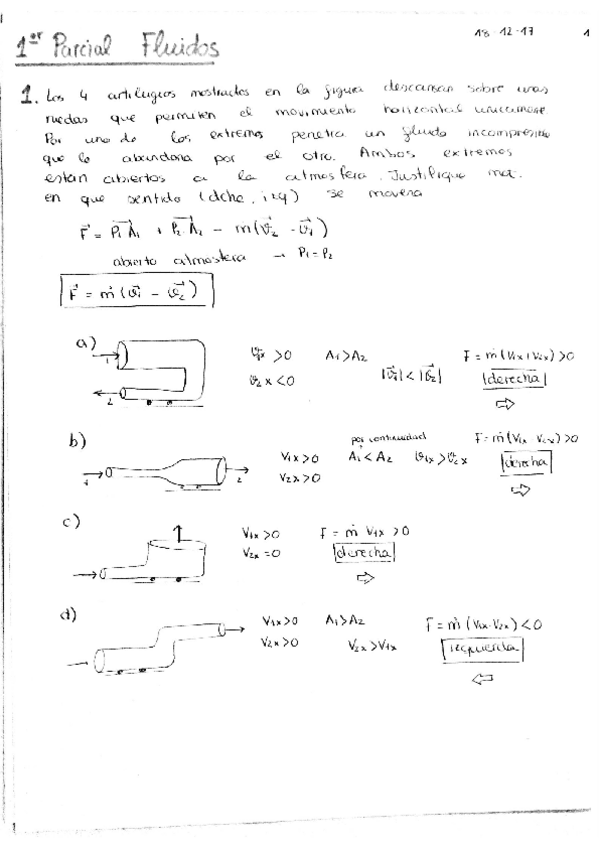 18-12-17 1
1er Parcial Fluidos
1. Los 4 artilugios mostrados en la figura descansan sobre unas
ruedas que permiten el movimiento horizontal unicamente.
Por uno de los extremos penetra un fluido incompresible
que lo abandona por el otro. Ambos extremos
estan abiertos a la atmosfera. Justifique
en que sentido (dcha, izq) se movera
F = P1 A1 + P2 A2 - ṁ(v2 - v1)
abierto atmosfera → P1 = P2
F = ṁ(v1 - v2)
a) 1 2 v1x > 0 A1 > A2 F = ṁ(v1x + v2x) > 0
v2x < 0 |v1| < |v2| derecha
b) 1 2 V1x > 0 por continuidad A1 < A2 v1x > v2x F = ṁ(V1x - V2x) > 0
V2x > 0 derecha
c) V1x > 0 F = ṁ V1x > 0
V2x = 0 derecha
d) V1x > 0 A1 > A2 F = ṁ(V1x - V2x) < 0
V2x > 0 V2x > V1x izquierda
1